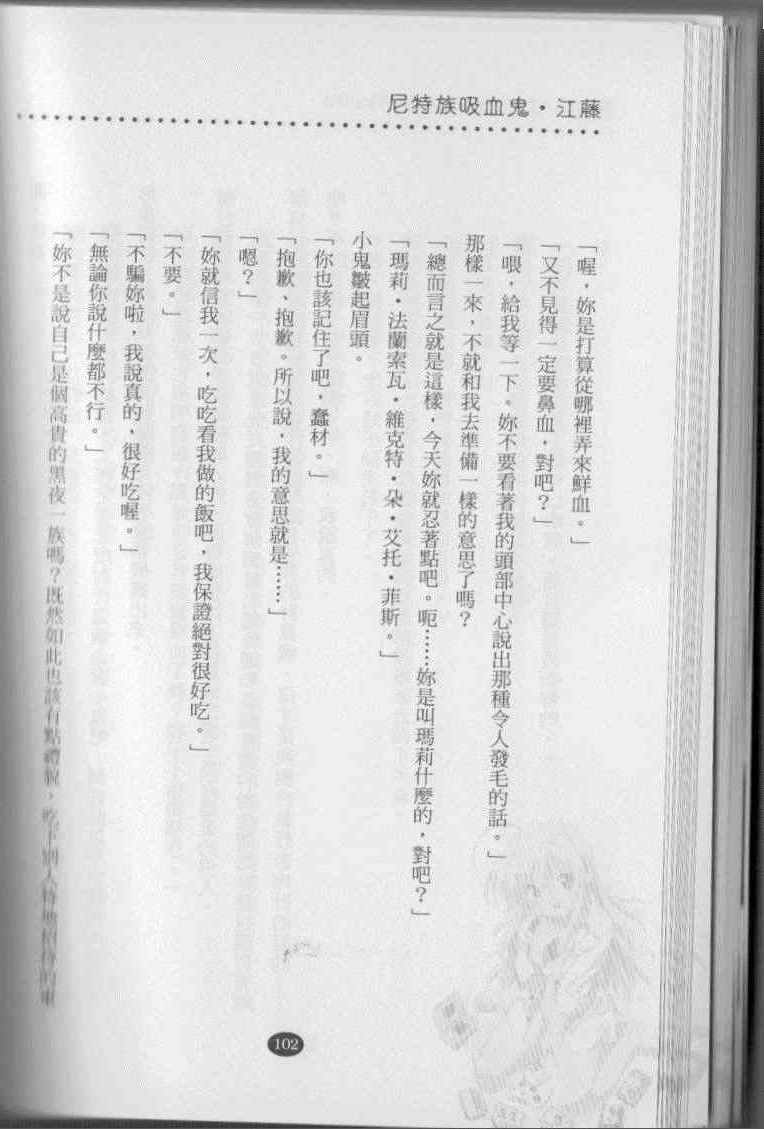 尼特族吸血鬼・江藤
「喔，妳是打算從哪裡弄來鮮血。」
「又不見得一定要鼻血，對吧？」
「喂，給我等一下。妳不要看著我的頭部中心說出那種令人發毛的話。」
那樣一來，不就和我去準備一樣的意思了嗎？
「總而言之就是這樣，今天妳就忍著點吧。呃……妳是叫瑪莉什麼的，對吧？」
「瑪莉・法蘭索瓦・維克特・朵・艾托・菲斯。」
小鬼皺起眉頭。
「你也該記住了吧，蠢材。」
「抱歉、抱歉。所以說，我的意思就是……」
「嗯？」
「妳就信我一次，吃吃看我做的飯吧，我保證絕對很好吃。」
「不要。」
「不騙妳啦，我說真的，很好吃喔。」
「無論你說什麼都不行。」
「妳不是說自己是個高貴的黑夜一族嗎？既然如此也該有點禮貌，吃下別人特地招待的東
102